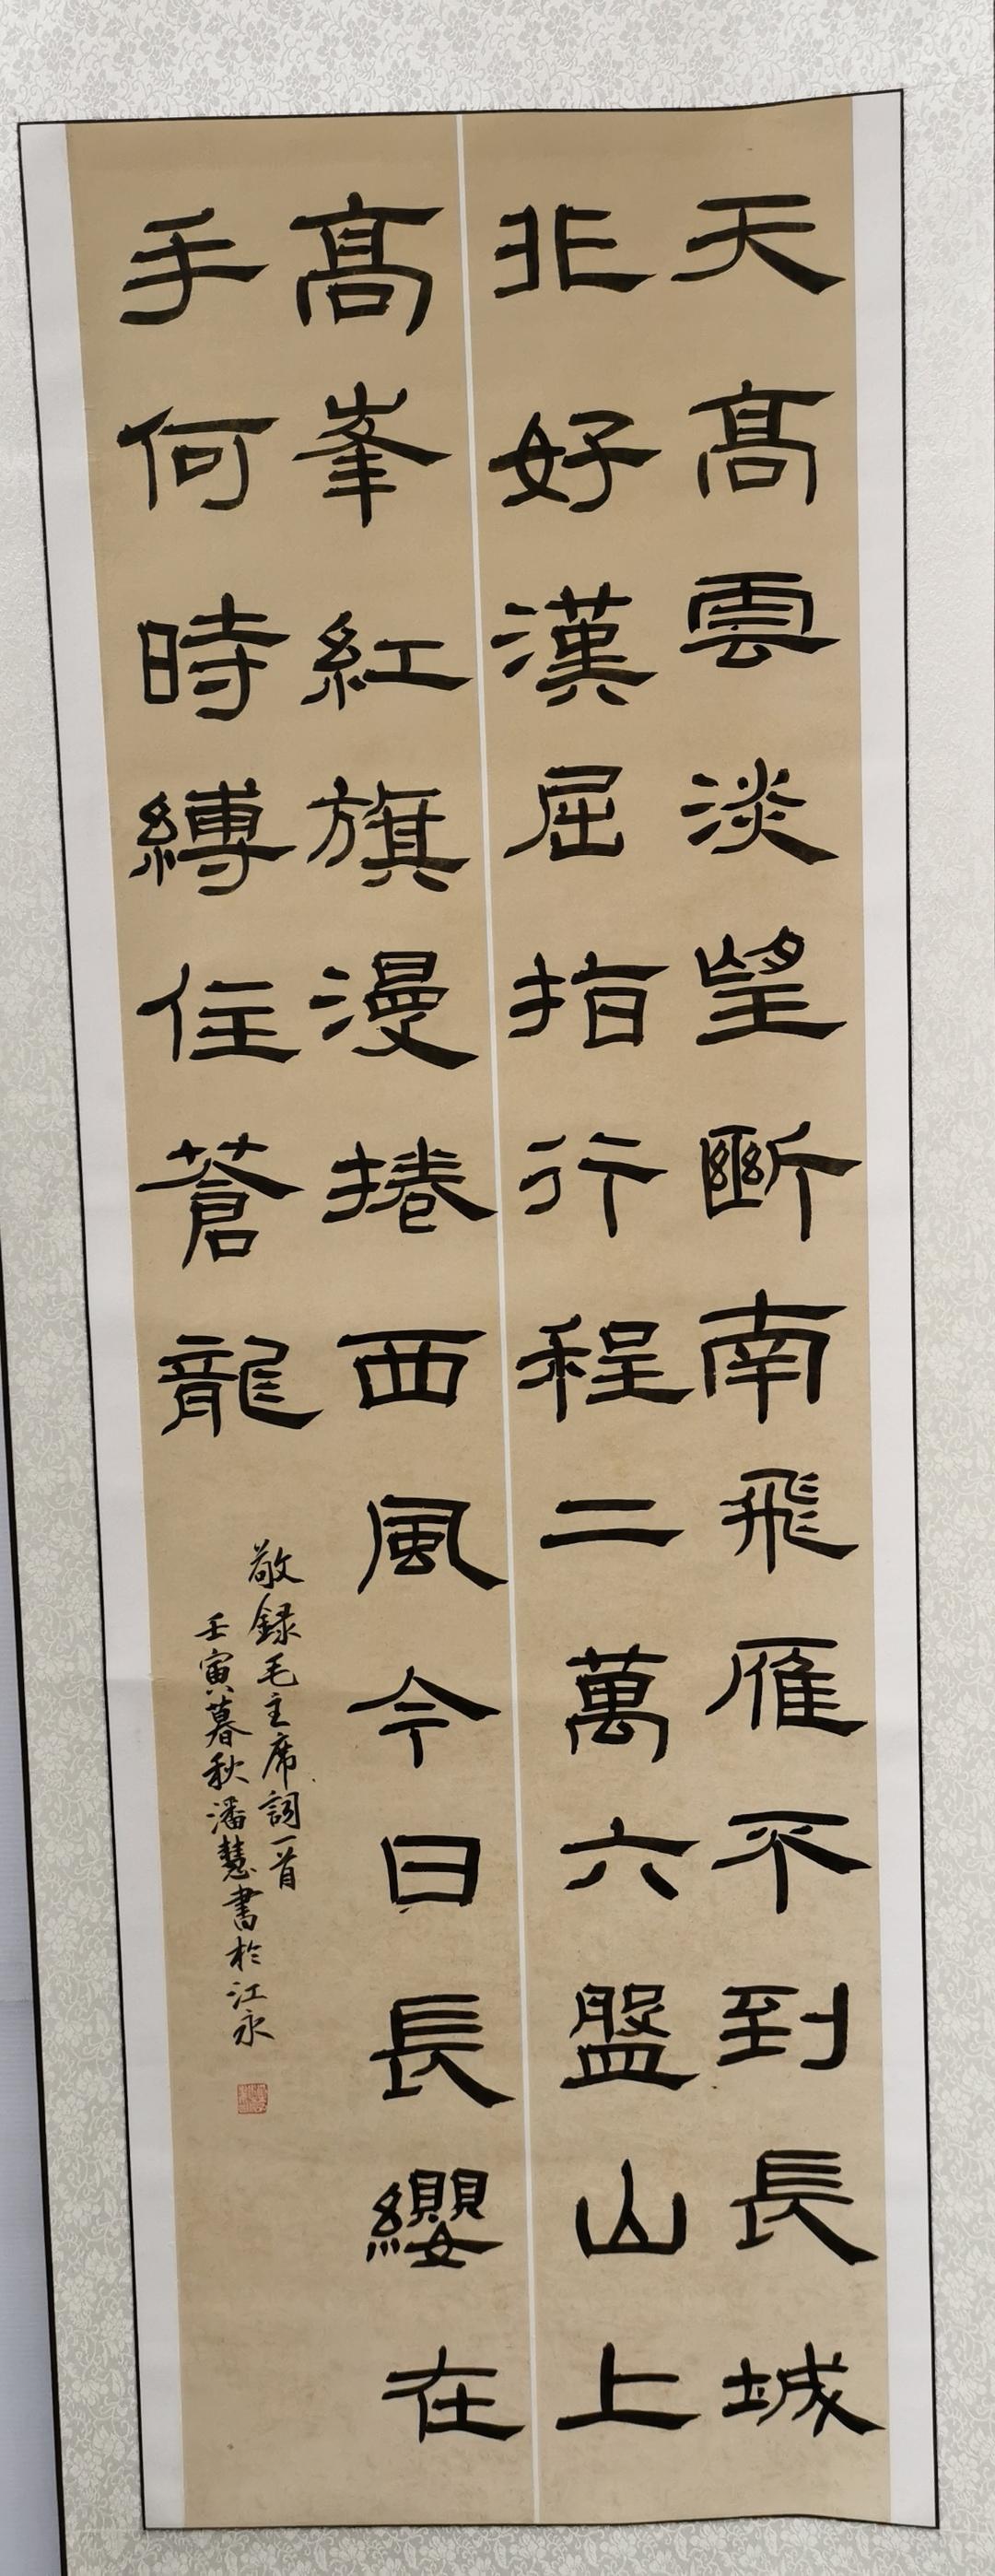 天高雲淡望斷南飛雁不到長城
非好漢屈指行程二萬六盤山上
高峯紅旗漫捲西風今日長纓在
手何時縛住蒼龍
敬録毛主席詞一首
壬寅暮秋潘慧書於江永